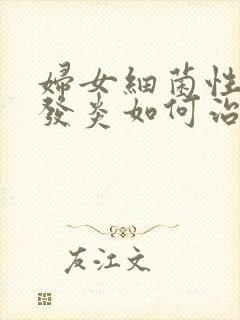 婦女細菌性
發炎如何治
友江文